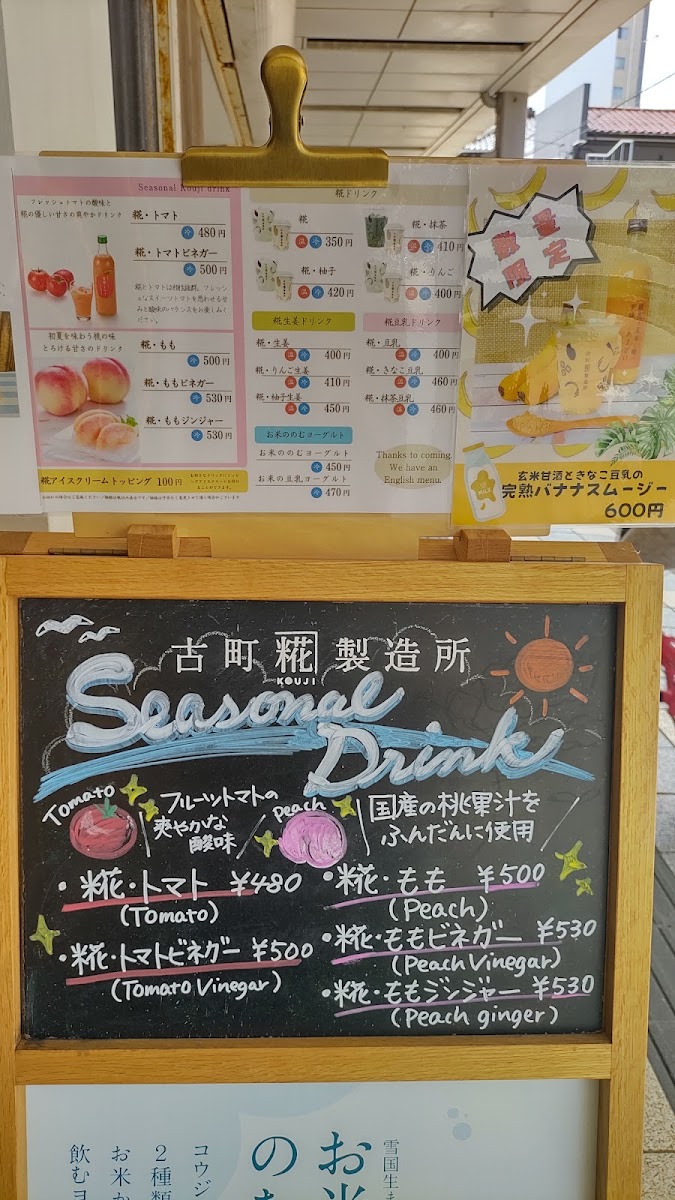 Seasonal Kouji drink
フレッシュトマトの酸味と
糀の優しい甘さの爽やかドリンク
糀・トマト
冷 480円
糀・トマトビネガー
冷 500円
糀とトマトは相性抜群。フレッシュ
初夏を味わう桃の味
とろける甘さのドリンク
糀・もも
冷 500円
糀・ももビネガー
冷 530円
糀・ももジンジャー
冷 530円
糀アイスクリームトッピング 100円
糀ドリンク
糀
温 冷 350円
糀・抹茶
温 冷 410円
糀・柚子
温 冷 420円
糀・りんご
温 冷 400円
糀生姜ドリンク
糀・生姜
温 冷 400円
糀・りんご生姜
温 冷 410円
糀・柚子生姜
温 冷 450円
糀豆乳ドリンク
糀・豆乳
温 冷 400円
糀・きなこ豆乳
温 冷 460円
糀・抹茶豆乳
温 冷 460円
お米ののむヨーグルト
お米ののむヨーグルト
冷 450円
お米の豆乳ヨーグルト
冷 470円
Thanks to coming.
We have an
English menu.
数量
限定
MILK
玄米甘酒ときなこ豆乳の
完熟バナナスムージー
600円
古町糀製造所
KOUJI
Seasonal
Drink
Tomato
フルーツトマトの
爽やかな
酸味
Peach
国産の桃果汁を
ふんだんに使用
・糀・トマト ¥480
(Tomato)
・糀・トマトビネガー ¥500
(Tomato Vinegar)
・糀・もも ¥500
(Peach)
・糀・ももビネガー ¥530
(Peach Vinegar)
・糀・ももジンジャー ¥530
(Peach ginger)
雪国生ま
お米
のむ
コウジ
2種類
お米か
飲むヨ